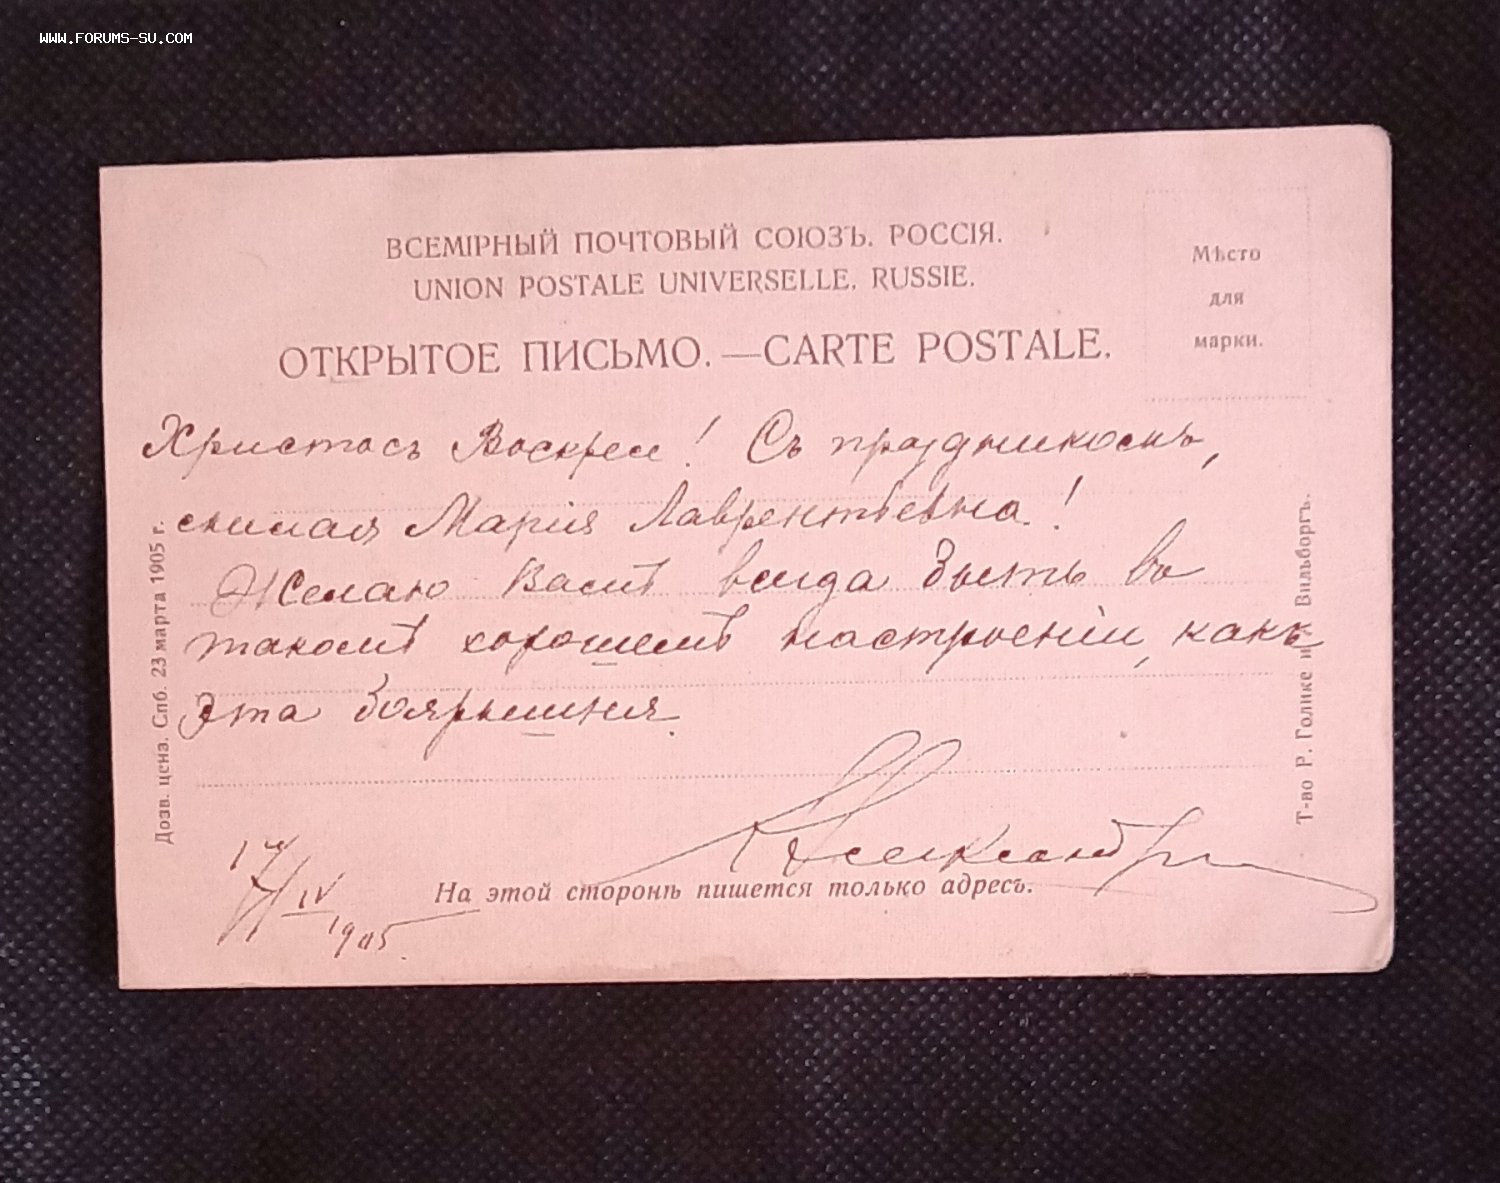 WWW.FORUMS-SU.COM
ВСЕМІРНЫЙ ПОЧТОВЫЙ СОЮЗЪ. РОССІЯ.
UNION POSTALE UNIVERSELLE. RUSSIE.
ОТКРЫТОЕ ПИСЬМО.—CARTE POSTALE.
Мѣсто
для
марки.
Христосъ Воскресе! Съ праздникомъ,
милая Марія Лаврентьевна!
Желаю Вамъ всегда быть въ
такомъ хорошемъ настроеніи, какъ
эта боярышня.
Александръ
17/IV 1905.
На этой сторонѣ пишется только адресъ.
Дозв. ценз. Спб. 23 марта 1905 г.
Т-во Р. Голике и Вильборгъ.